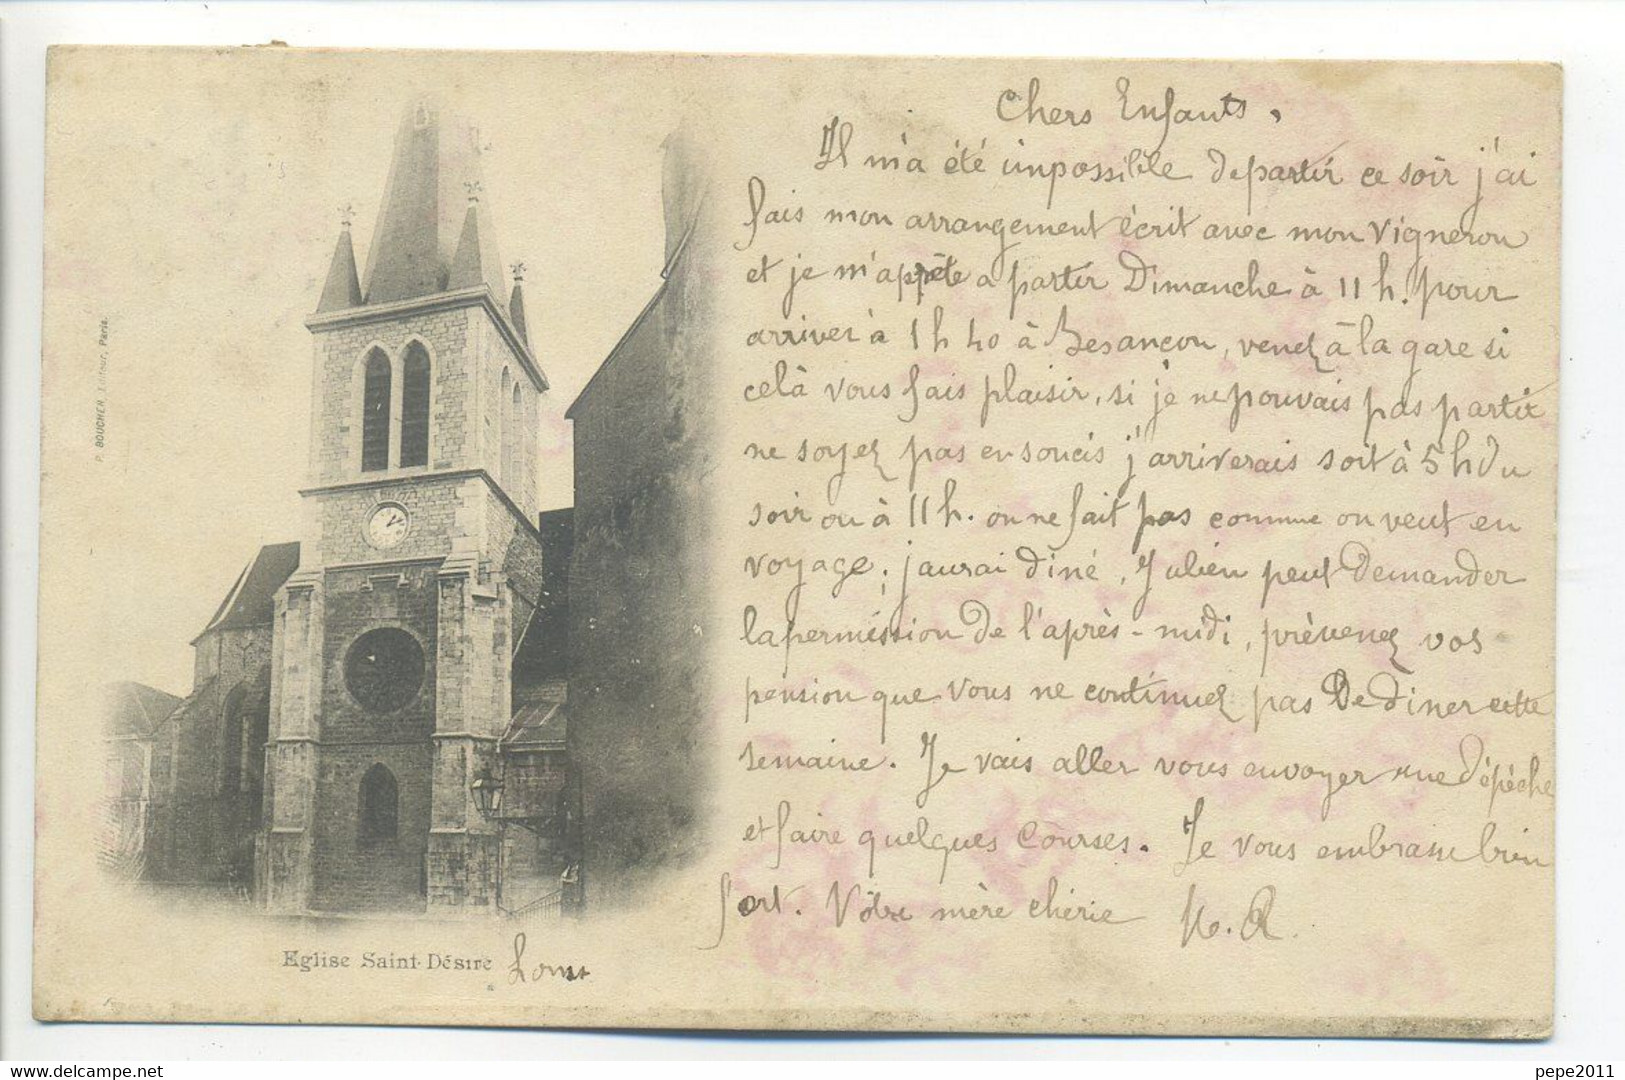 Chers Enfants,
Il m'a été impossible de partir ce soir j'ai
fais mon arrangement écrit avec mon vigneron
et je m'apprête a partir Dimanche à 11 h. pour
arriver à 1 h 40 à Besançon, venez à la gare si
celà vous fais plaisir, si je ne pouvais pas partir
ne soyez pas en soucis j'arriverais soit à 5 h du
soir ou à 11 h. on ne fait pas comme on veut en
voyage, j'aurai diné, Julien peut Demander
la permission De l'après-midi, prèvenez vos
pension que vous ne continuez pas De diner cette
semaine. Je vais aller vous envoyer une Dépèche
et faire quelques Courses. Je vous embrasse bien
fort. Vôtre mère chérie
P. BOUCHER, Editeur, Paris.
Eglise Saint-Désiré Lons
pepe2011